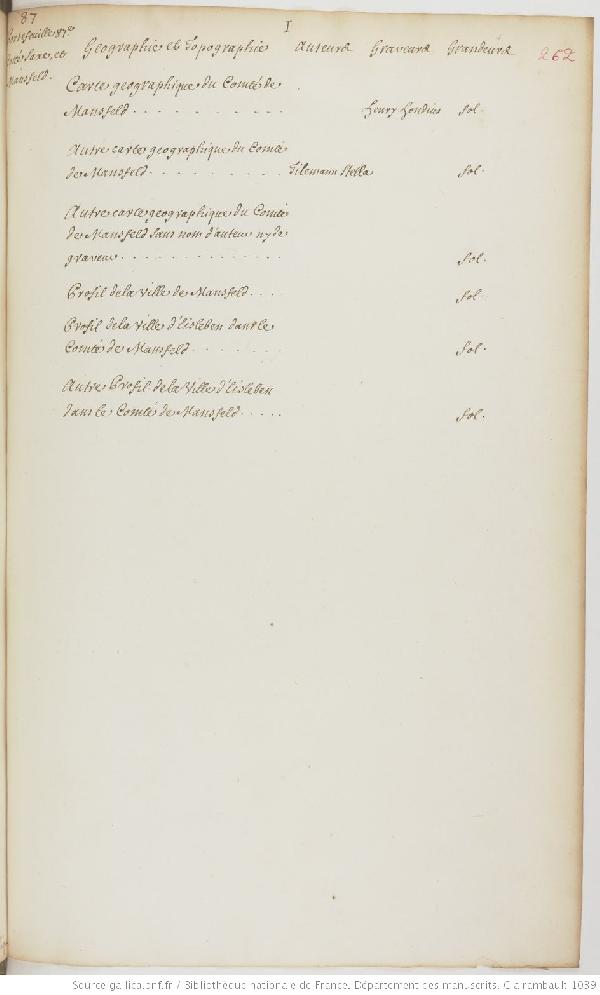 87
I
Portefeuille 87e
Saxe, et
Mansfeld.
Geographie et Topographie Auteurs Graveurs Grandeurs 262
Carte geographique du Comté de
Mansfeld . . . . . . . . . . . Henry Hondius fol.
Autre carte geographique du Comté
de Mansfeld . . . . . . . . . Tilemann Stella fol.
Autre carte geographique du Comté
de Mansfeld sans nom d'auteur ny de
graveur . . . . . . . . . . . . . fol.
Profil de la ville de Mansfeld . . . fol.
Profil de la ville d'Eisleben dans le
Comté de Mansfeld . . . . . . . fol.
Autre Profil de la Ville d'Eisleben
dans le Comté de Mansfeld . . . . . fol.
Source gallica.bnf.fr / Bibliothèque nationale de France. Département des manuscrits. Clairambault 1039